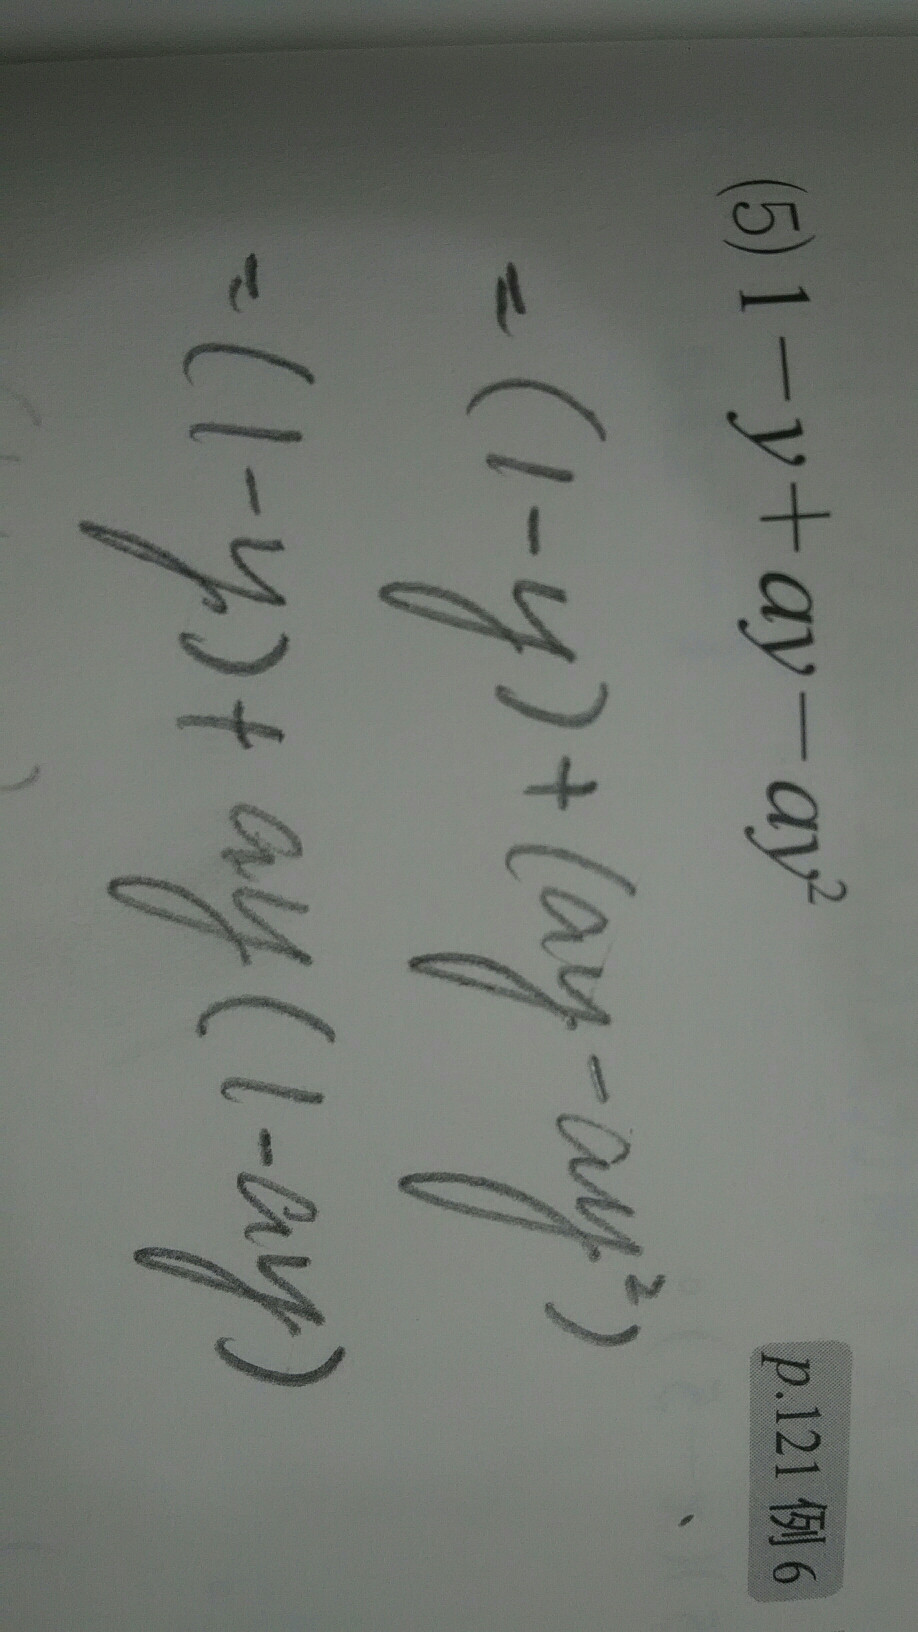 (5) 1−y+ay−ay² p.121 例 6
= (1−y)+(ay−ay²)
= (1−y)+ay(1−ay)